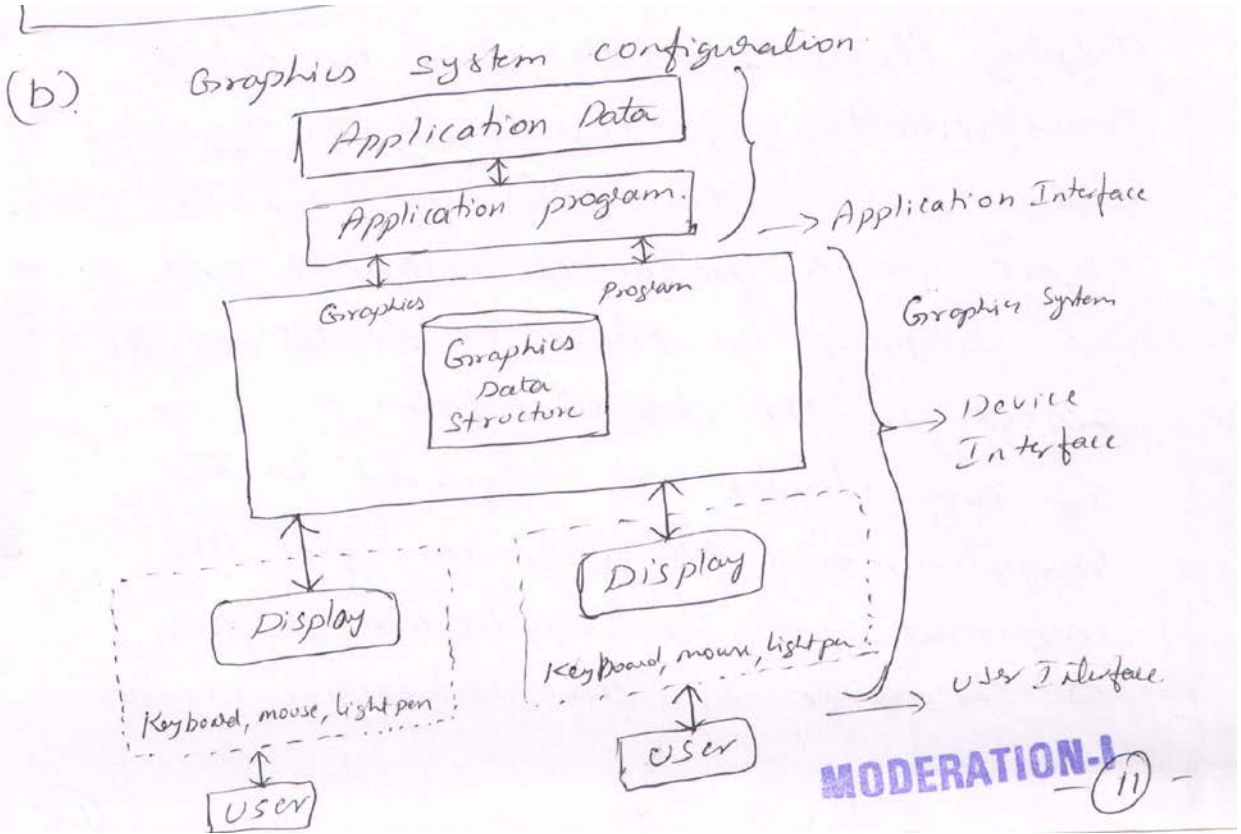 (b) Graphics system configuration.
Application Data
Application program.
→ Application Interface
Graphics Program
Graphics System
Graphics
Data
Structure
→ Device
Interface
Display
Display
Keyboard, mouse, light pen
Keyboard, mouse, light pen
→ User Interface
User
User
MODERATION-I
- 11 -